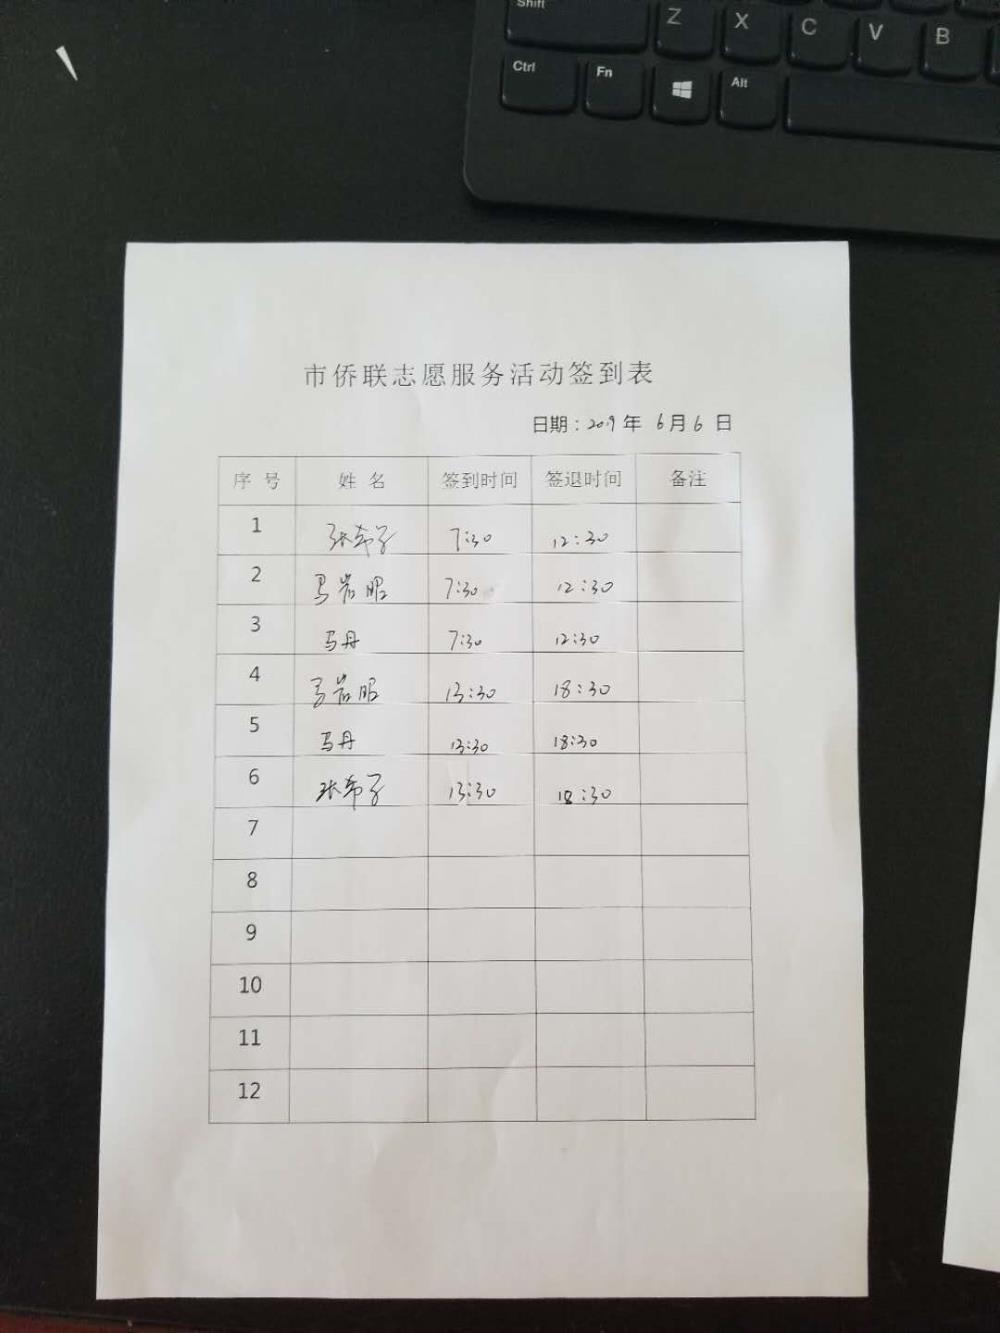 Shift Z X C V B
Ctrl Fn Alt
市侨联志愿服务活动签到表
日期：2019年 6月6日
序号 姓名 签到时间 签退时间 备注
1 张希子 7:30 12:30
2 马岩昭 7:30 12:30
3 马丹 7:30 12:30
4 马岩昭 13:30 18:30
5 马丹 13:30 18:30
6 张希子 13:30 18:30
7
8
9
10
11
12